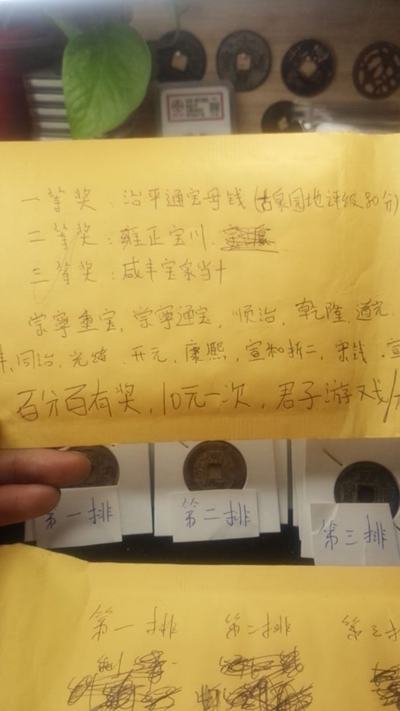 一等奖：治平通宝母钱(古泉园地评级80分)
二等奖：雍正宝川
三等奖：咸丰宝泉当十
崇宁重宝，崇宁通宝，顺治，乾隆，道光
同治，光绪，开元，康熙，宣和折二，宋钱，宣
百分百有奖，10元一次，君子游戏
第一排
第二排
第三排
第一排
第二排
第三